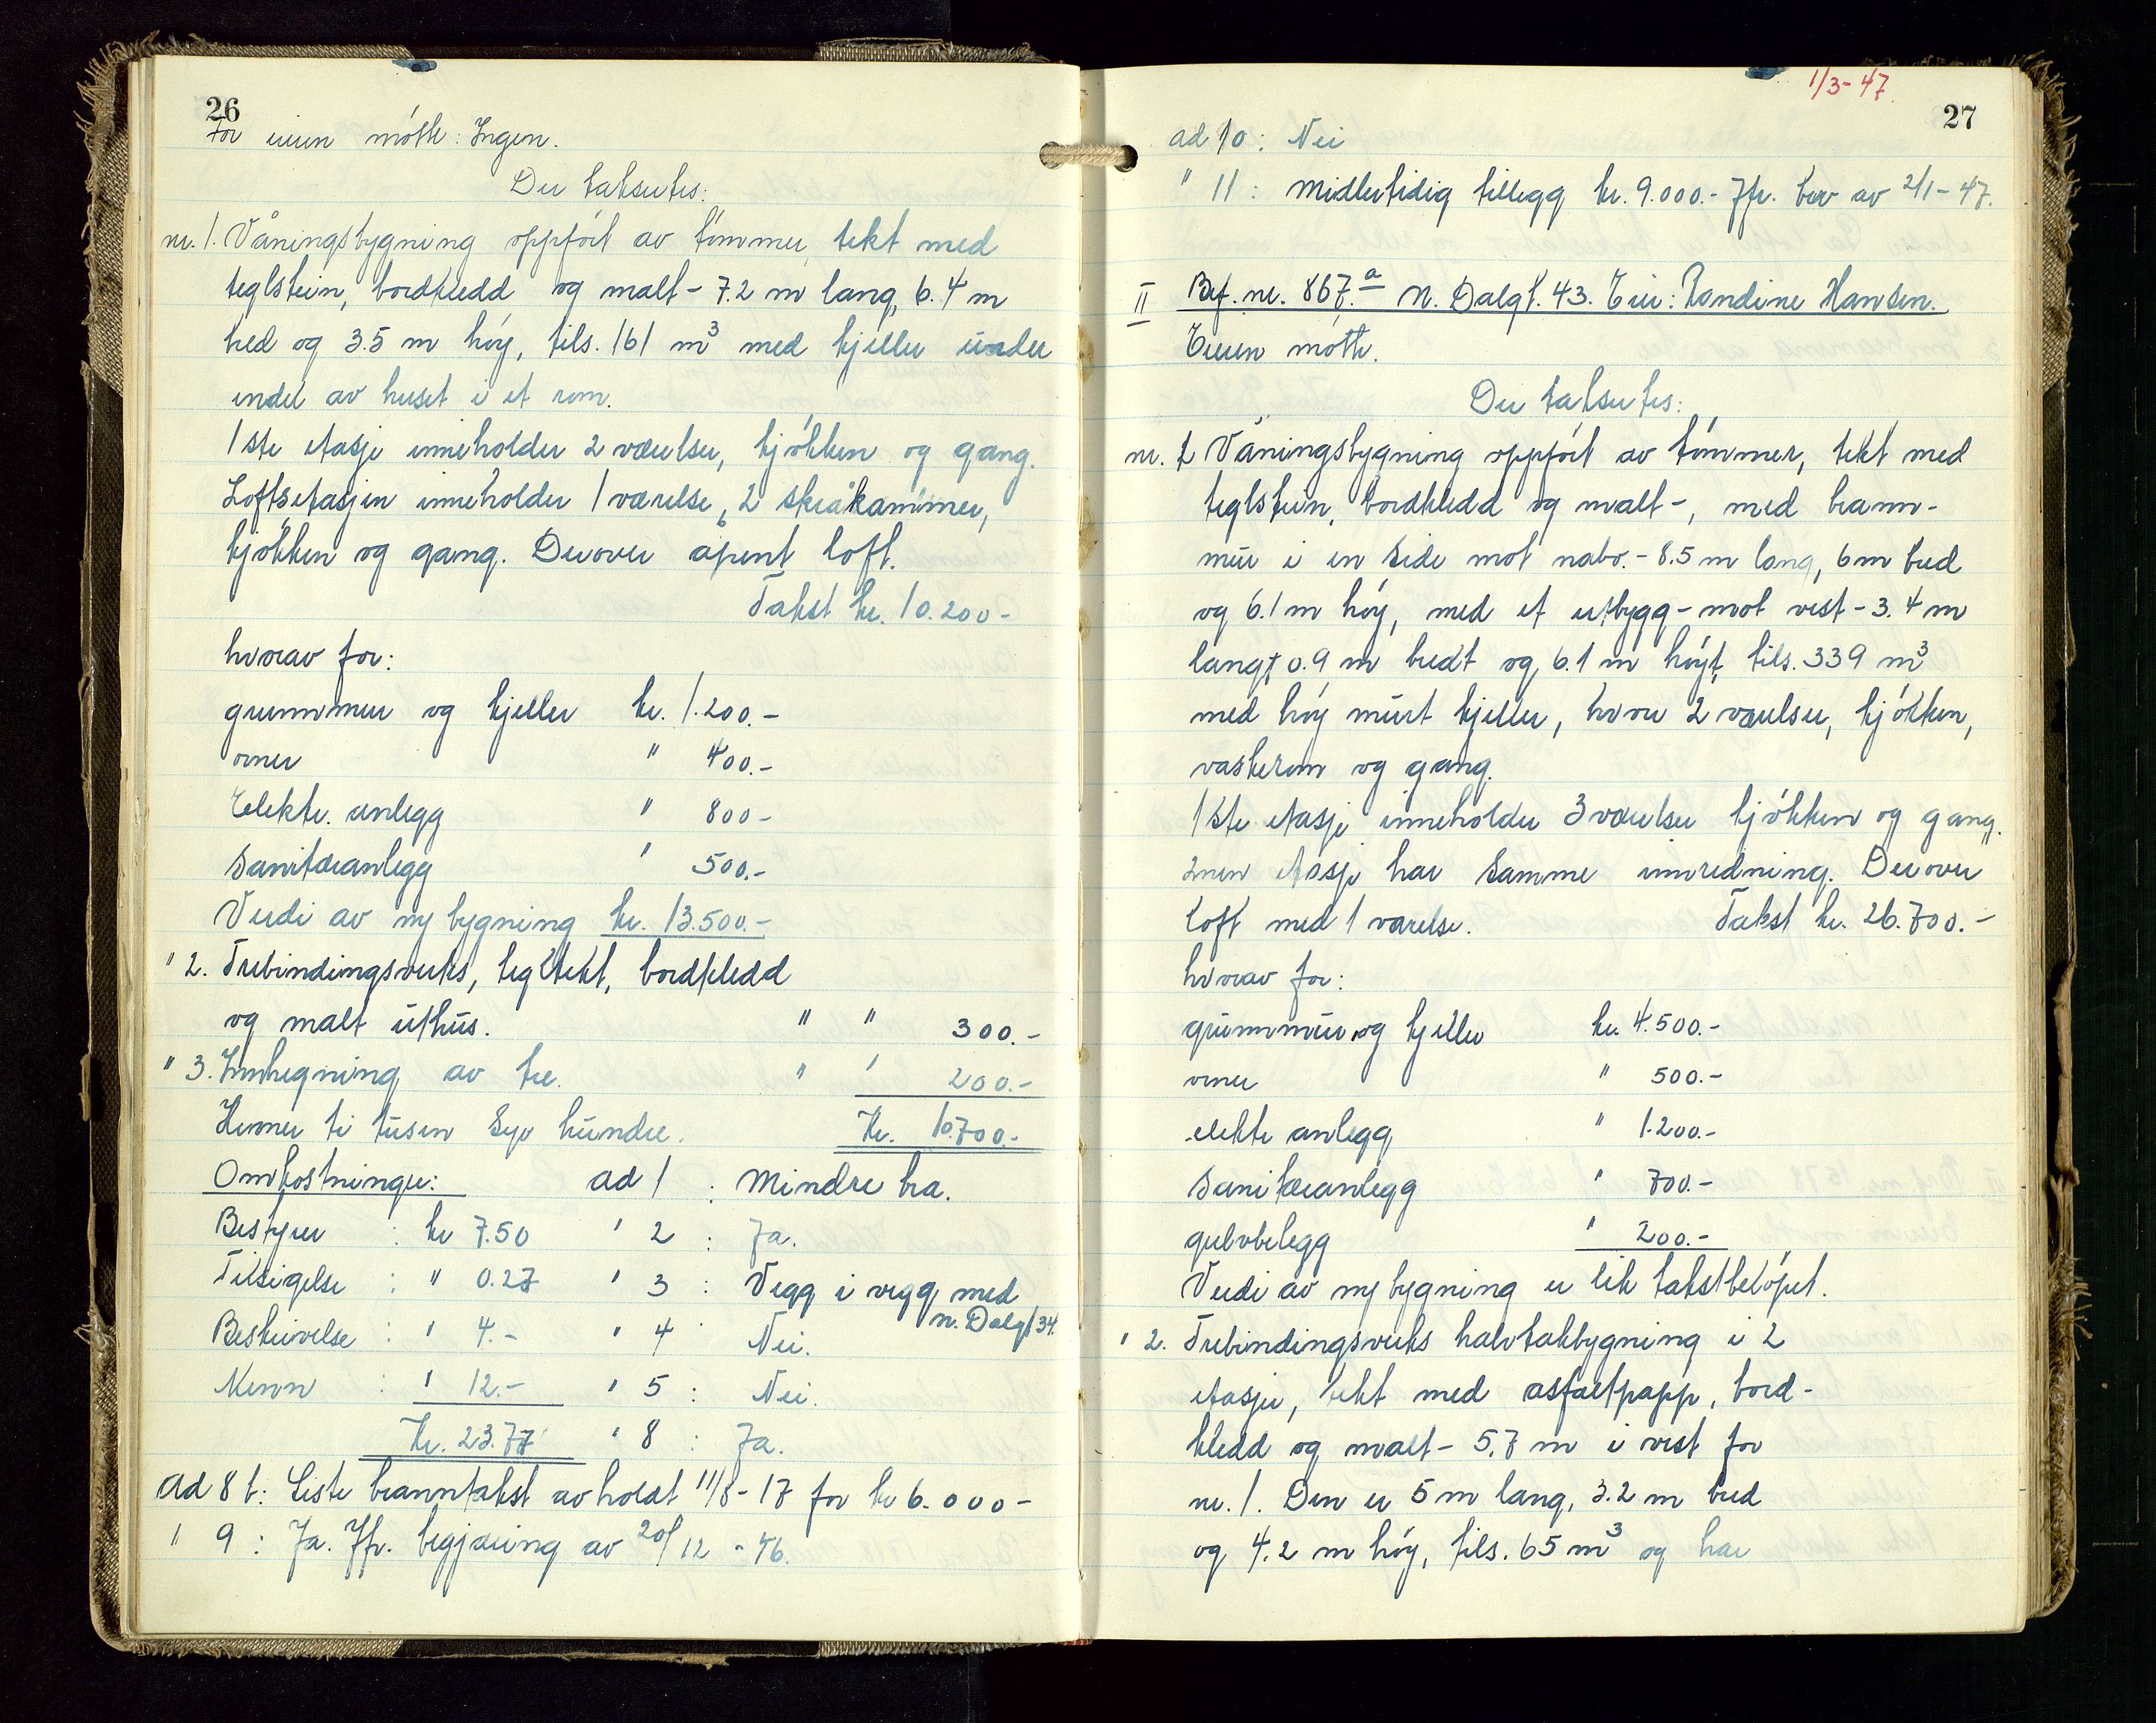 26
For eieren møtte: Ingen.
Der taksertes:
nr. 1. Våningsbygning oppført av tømmer, tekt med
teglstein, bordkledd og malt - 7.2 m lang, 6.4 m
bred og 3.5 m høy, tils. 161 m³ med kjeller under
endel av huset i et rom.
1ste etasje inneholder 2 værelser, kjøkken og gang.
Loftsetasjen inneholder 1 værelse, 2 skråkammer,
kjøkken og gang. Derover åpent loft.
Takst kr. 10.200-
hvorav for:
grunnmur og kjeller kr. 1.200.-
ovner " 400.-
Elektr. anlegg " 800-
Sanitæranlegg " 500.-
Verdi av ny bygning kr. 13.500.-
" 2. Trebindingsverks, tegltekt, bordkledd
og malt uthus. " " 300.-
" 3. Innhegning av tre. " " 200.-
Kroner ti tusen syv hundre. Kr. 10.700.-
Omkostninger: ad 1 : Mindre bra.
Bestyrer : kr 7.50 " 2 : Ja.
Tilsigelse : " 0.27 " 3 : Vegg i vegg med
n. Dalgt 34.
Beskrivelse : " 4.- " 4 : Nei.
Menn : " 12.- " 5 : Nei.
Kr. 23.77 " 8 : Ja.
Ad 8 b: Siste branntakst avholdt 11/8-17 for kr 6.000-
" 9 : Ja. Jfr. begjæring av 20/12 - 46.
1/3-47.
27
ad 10 : Nei
" 11 : Midlertidig tillegg kr. 9.000.- Jfr. brev av 2/1-47.
II Brf. nr. 867.a N. Dalgt. 43. Eier: Randine Hansen.
Eieren møtte.
Der taksertes:
nr. 1 Våningsbygning oppført av tømmer, tekt med
teglstein, bordkledd og malt -, med brann-
mur i en side mot nabo. - 8.5 m lang, 6 m bred
og 6.1 m høy, med et utbygg - mot vest - 3.4 m
langt 0.9 m bredt og 6.1 m høyt, tils. 339 m³
med høy murt kjeller, hvori 2 værelser, kjøkken,
vaskerom og gang.
1ste etasje inneholder 3 værelser kjøkken og gang.
2nen etasje har samme innredning. Derover
loft med 1 værelse. Takst kr. 26.700.-
hvorav for:
grunnmur og kjeller kr. 4.500.-
ovner " 500.-
elektr anlegg " 1.200.-
Sanitæranlegg " 700.-
gulvbelegg " 200.-
Verdi av ny bygning er lik takstbeløpet.
" 2. Trebindingsverks halvtakbygning i 2
etasjer, tekt med asfaltpapp, bord-
kledd og malt - 5.7 m i vest for
nr. 1. Den er 5 m lang, 3.2 m bred
og 4.2 m høy, tils. 65 m³ og har